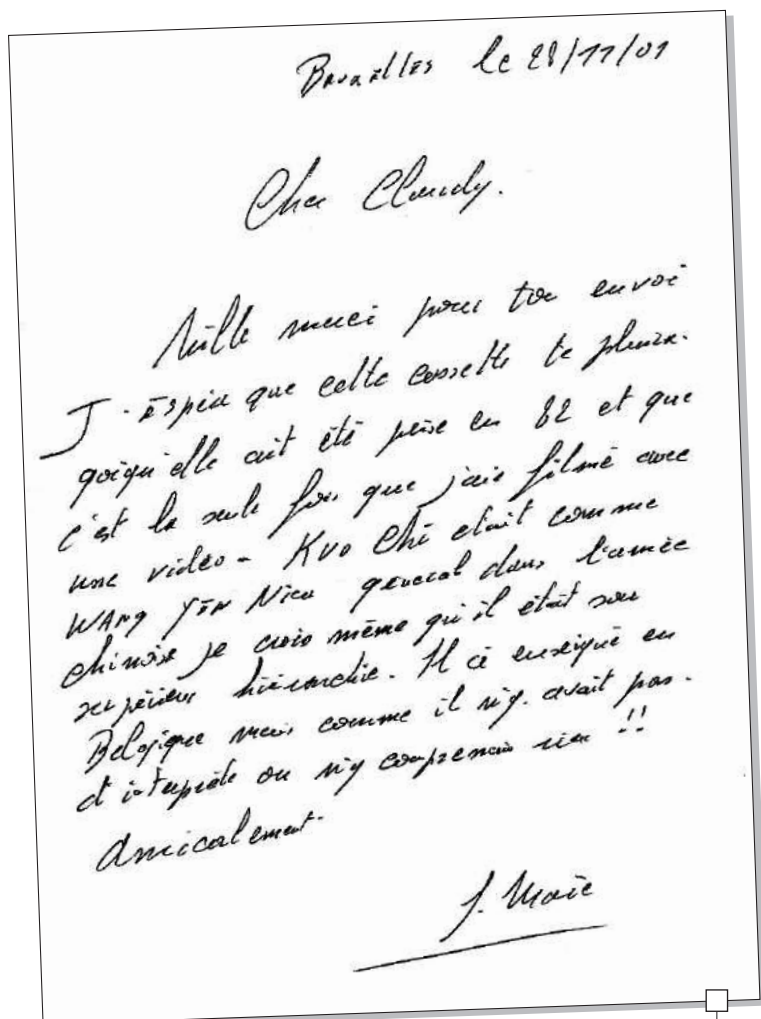 Bruxelles le 28/11/01
Cher Claudy.
Mille merci pour ton envoi
J'espère que cette cassette te plaira.
qoiqu'elle ait été prise en 82 et que
c'est la seule fois que j'ais filmé avec
une video - Kuo Chi etait comme
WANG YEN Nien general dans l'armée
chinoise je crois même qu'il était son
supérieur hiérarchie. Il a enseigné en
Belgique mais comme il n'y. avait pas.
d'interprète on n'y comprenais rien !!
Amicalement.